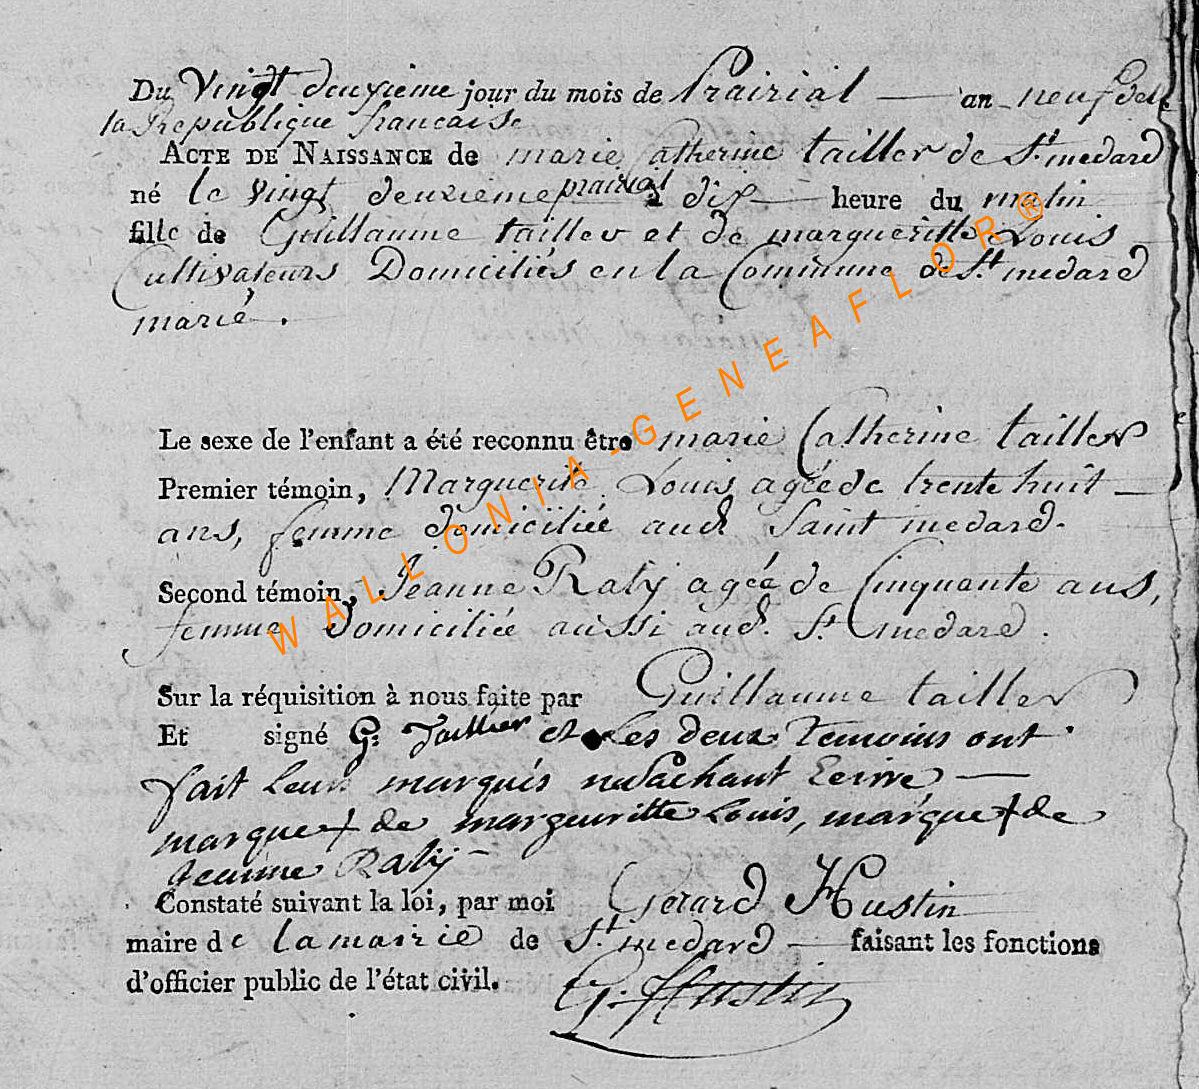 Du Vingt deuxieme jour du mois de Prairial — an neuf de
la Republique francaise
ACTE DE NAISSANCE de marie Catherine tailler de St. medard
né le vingt deuxieme prairial à dix heure du matin
fille de Guillaume tailler et de margueritte Louis
Cultivateurs Domiciliés en la Commune de St. medard
marié.
Le sexe de l'enfant a été reconnu être marie Catherine tailler
Premier témoin, Marguerite Louis agée de trente huit —
ans, femme domiciliée aud. Saint medard.
Second témoin, Jeanne Raty agée de Cinquante ans,
femme Domiciliée aussi aud. St. medard.
Sur la réquisition à nous faite par Guillaume tailler
Et signé G: Taillier et Les deux Temoins ont
fait leurs marqués ne sachant Ecrire —
marque + de margueritte Louis, marque + de
Jeanne Raty —
Constaté suivant la loi, par moi Gerard Hustin
maire de la mairie de St. medard — faisant les fonctions
d'officier public de l'état civil. G. Hustin
WALLONIA-GENEAFLOR®